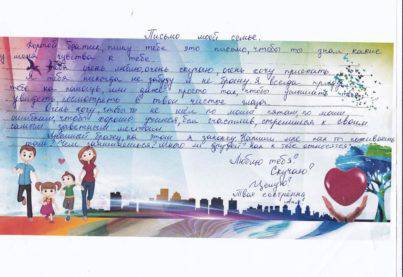 Письмо моей семье.
Дорогой братик, пишу тебе это письмо, чтобы ты знал какие
у меня чувства к тебе.
очень люблю, очень скучаю, очень хочу приехать.
Я тебя никогда не забуду и не брошу. Я всегда приду
тебе на помощь, или даже просто так, чтобы
увидеть, посмотреть в твои чистые глаза.
очень хочу, чтобы ты не шёл по моим пятам, по моим
ошибкам, чтобы хорошо учился, был счастлив, стремился к своим
самым заветным мечтам.
на этом я закончу. Напиши мне как ты поживаешь
там? Чем занимаешься? много ли друзей? как к тебе относятся?
Люблю тебя!
Скучаю!
Целую!
Твоя сестрёнка